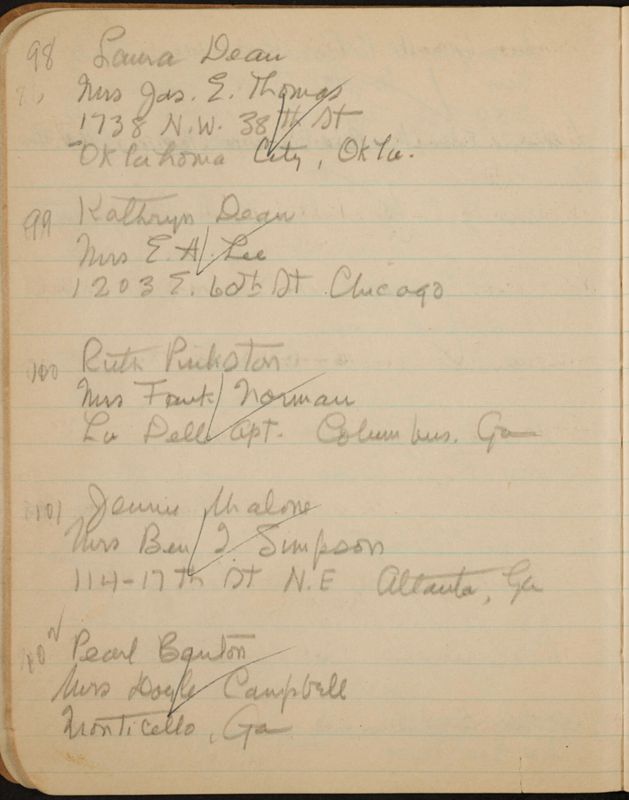 98 Laura Dean
Mrs Jas. E. Thomas
1738 N.W. 38th St
Oklahoma City, Okla.
99 Kathryn Dean
Mrs E. A. Lee
1203 E. 60th St Chicago
100 Ruth Pinkston
Mrs Frank Norman
La Dell Apt. Columbus. Ga
101 Jennie Malone
Mrs Ben J. Simpson
114-17th St N.E Atlanta, Ga
102 Pearl Benton
Mrs Doyle Campbell
Monticello, Ga